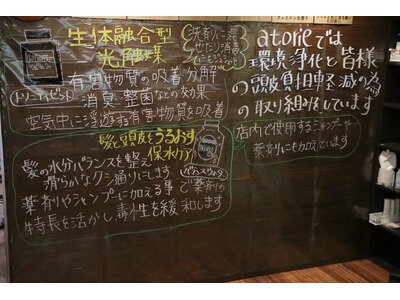 生体融合型
光触媒
洗剤に混
ぜたり消毒
有害物質の吸着分解
トリニティゼット
消臭 整菌などの効果
空気中に浮遊す有害物質を吸着
髪と頭皮をうるおす
保水ケア
髪の水分バランスを整え
滑らかなクシ通りにします
薬剤やシャンプーに加える事で薬剤の
特長を活かし毒性を緩和します
バランスウォーター
atorieでは
環境浄化と皆様
の頭皮負担軽減の為
の取り組みをしています
店内で使用するシャンプーや
薬剤にも加えています